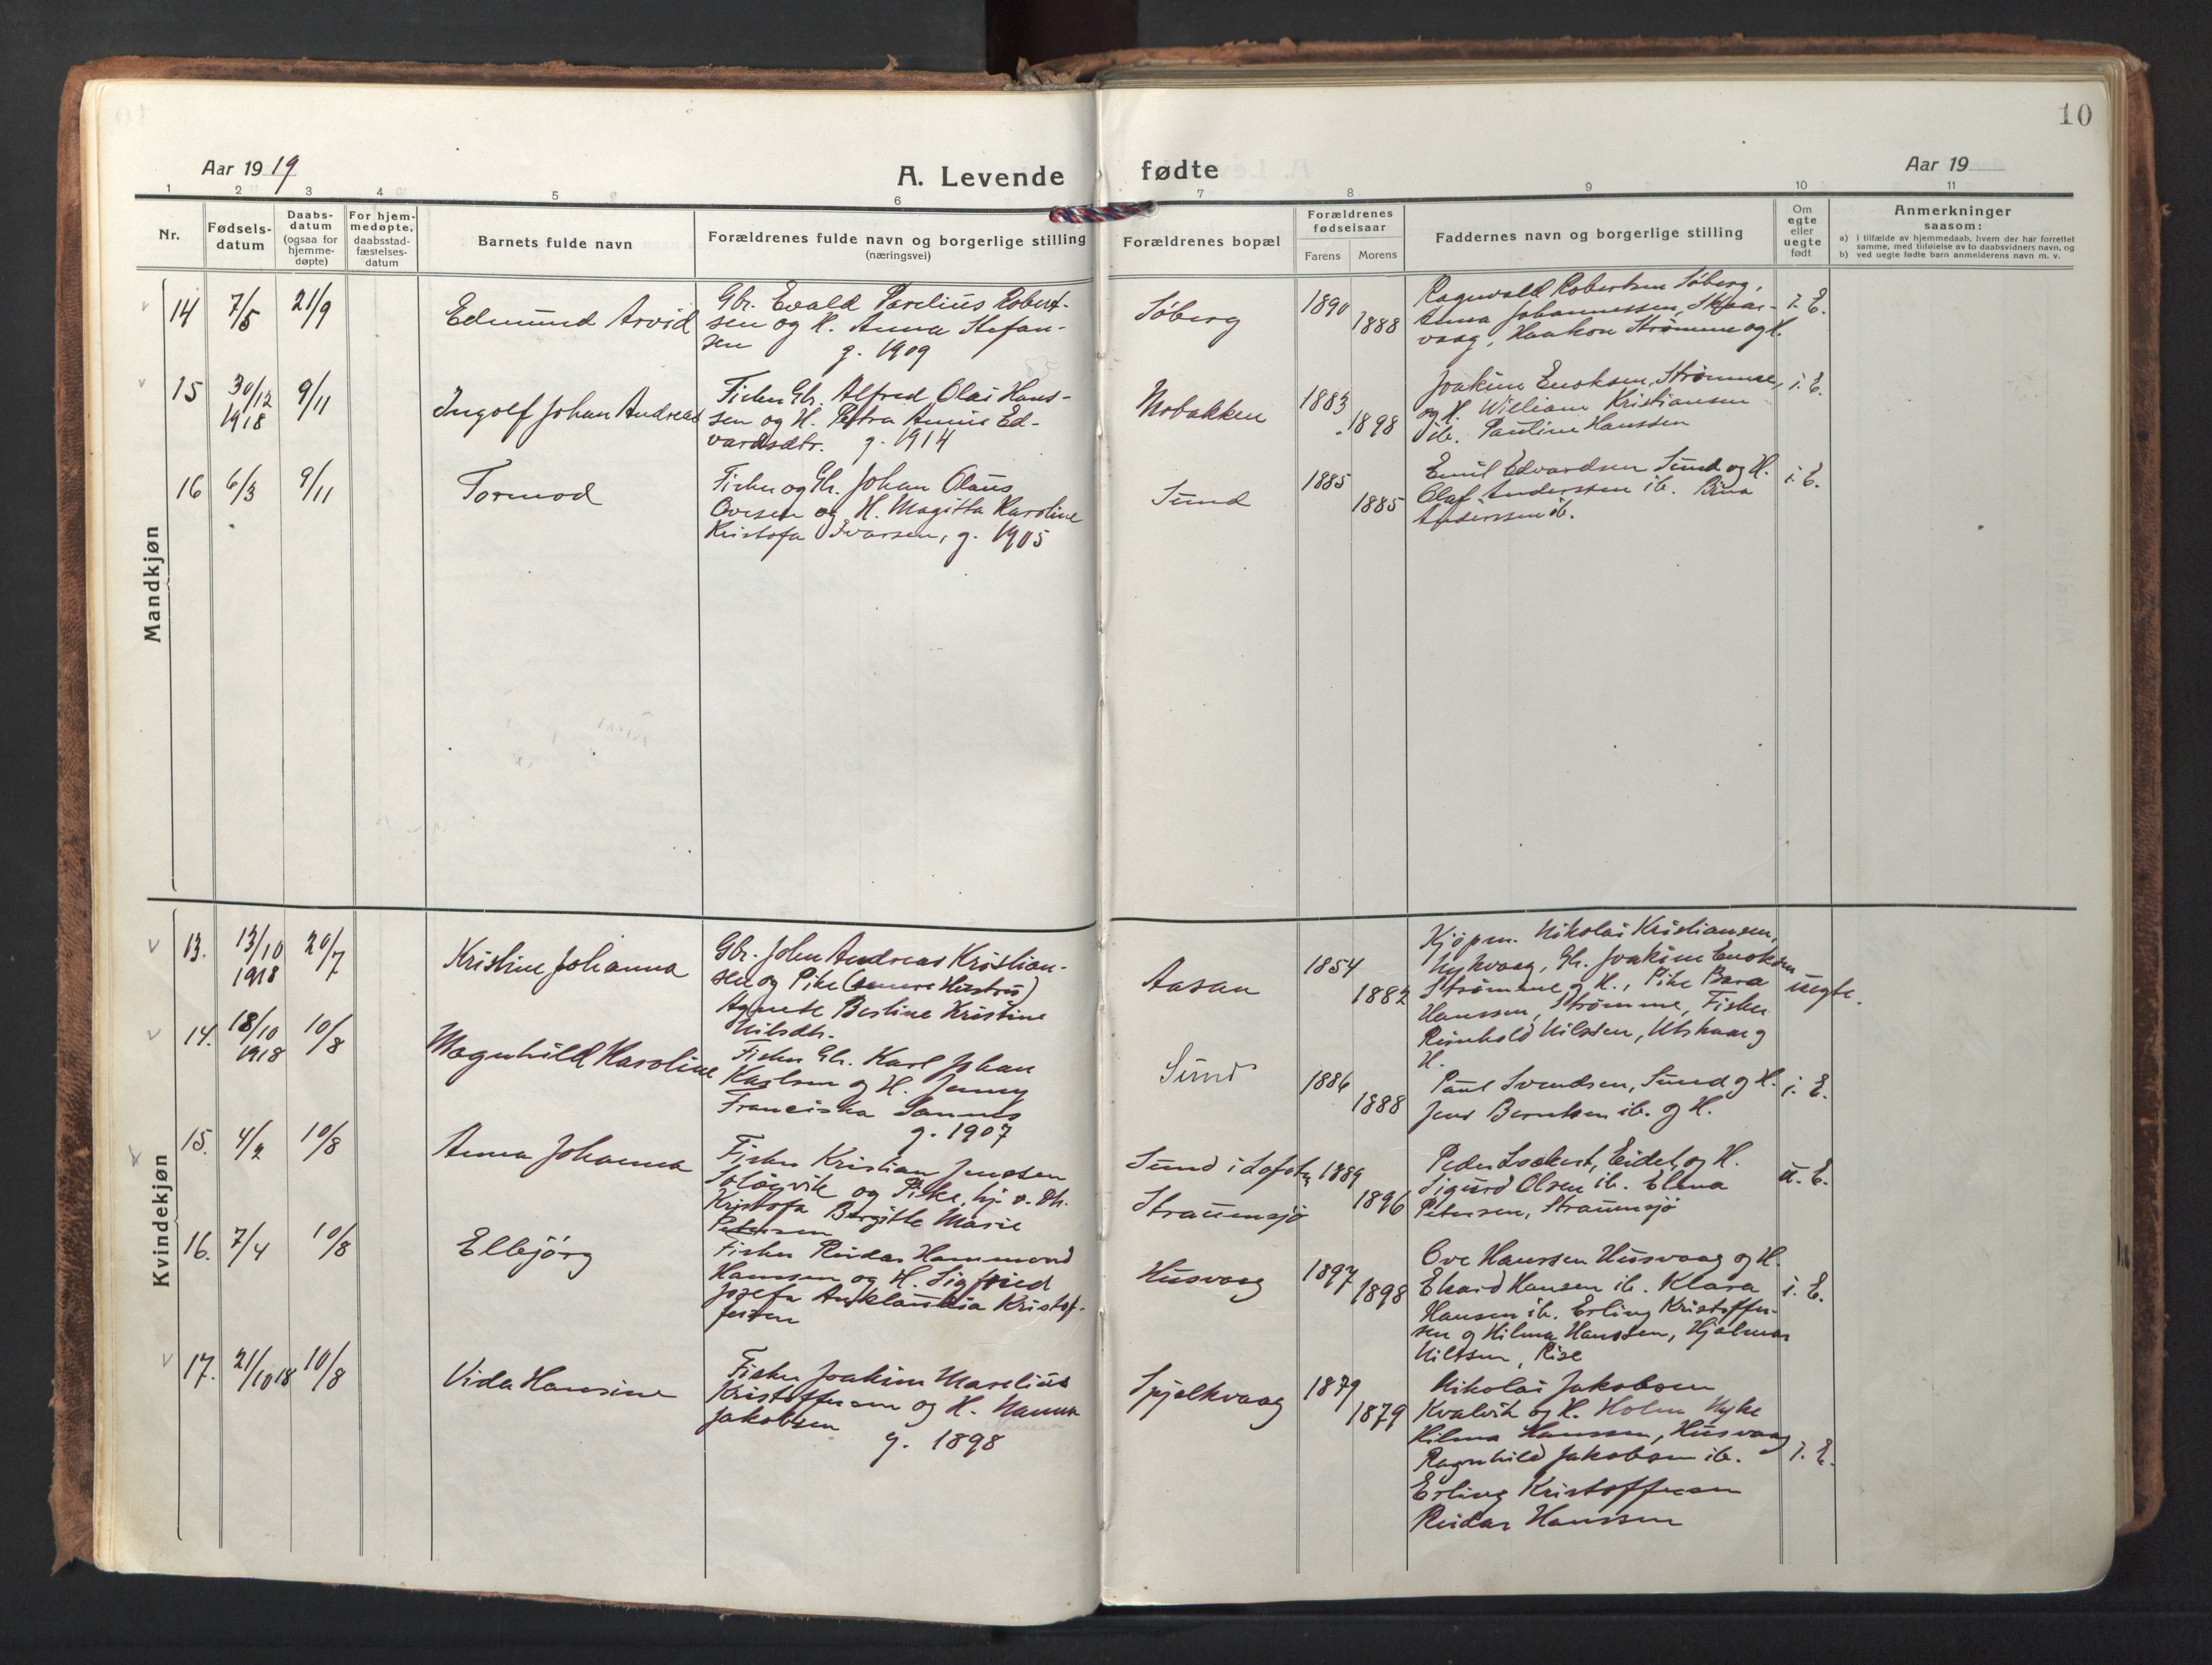 10
Aar 1919
A. Levende fødte
Aar 19
1 2 3 4 5 6 7 8 9 10 11
Nr.
Fødsels-
datum
Daabs-
datum
(ogsaa for
hjemme-
døpte)
For hjem-
medøpte,
daabsstad-
fæstelses-
datum
Barnets fulde navn
Forældrenes fulde navn og borgerlige stilling
(næringsvei)
Forældrenes bopæl
Forældrenes
fødselsaar
Farens Morens
Faddernes navn og borgerlige stilling
Om
egte
eller
uegte
født
Anmerkninger
saasom:
a) i tilfælde av hjemmedaab, hvem der har forrettet
samme, med tilføielse av to daabsvidners navn, og
b) ved uegte fødte barn anmelderens navn m. v.
Mandkjøn
14 7/5 21/9
Edmund Arvid
Gbr. Evald Parelius Robert-
sen og H. Anna Stefan-
sen
g. 1909
Søberg
1890
1888
Ragnvald Robertsen Søberg,
Anna Johannessen, Skaar-
vaag, Haakon Strømme og H.
i. E.
15 30/12 1918 9/11
Ingolf Johan Andreas
Fisker Gbr. Alfred Olai Hans-
sen og H. Petra Ed-
vardsdtr. g. 1914
Mobakken
1883
1898
Joakim Enoksen, Strømme,
og H. William Kristiansen
ib. Pauline Hanssen
i. E.
16 6/3 9/11
Tormod
Fisker og Gbr. Johan Olaus
Ovesen og H. Magitta Karoline
Kristofa Ivarsen, g. 1905
Sund
1885
1885
Emil Edvardsen Sund og H.
Olaf Anderssen ib. Bina
Anderssen ib.
i. E.
Kvindekjøn
13. 13/10 1918 20/7
Kristine Johanna
Gbr. John Andreas Kristian-
sen og Pike (senere Hustru)
Agnete Bertine Kristine
Nilsdtr.
Aasan
1854
1882
Kjøpm. Nikolai Kristiansen,
Nykvaag, Gbr. Joakim Enoksen
Strømme og H., Pike Bara
Hanssen, Strømme, Fisker
Reinhold Nilssen, og
H.
uegte.
14. 18/10 1918 10/8
Magnhild Karoline
Fisker Gbr. Karl Johan
Karlsen og H. Jenny
Franciska Sannes
g. 1907
Sund
1886
1888
Paul Svendsen, Sund og H.
Jens Berntsen ib. og H.
i. E.
15. 4/2 10/8
Anna Johanna
Fisker Kristian Jensen
og Pike, hj. v.
Kristofa Bergitte Marie
Petersen
Sund i Lofoten
Straumsjø
1889
1896
Peder Lockert, Eidet, og H.
Sigurd Olsen ib. Elena
Petersen, Straumsjø
u. E.
16. 7/4 10/8
Ellbjörg
Fisker Reidar Hammond
Hanssen og H. Sigfried
Josefa Kristof-
fersen
Husvaag
1897
1898
Ove Hanssen Husvaag og H.
Hansen ib. Klara
Hansen ib. Erling Kristoffer-
sen og Hilma Hanssen, Hjalmar
Nilssen, Rise
i. E.
17. 21/10 18 10/8
Vida Hansine
Fisker Joakim Marelius
Kristoffersen og H. Hanna
Jakobsen
g. 1898
Spjelkvaag
1879
1879
Nikolai Jakobsen
Kvalvik og H. Holm Nyke
Hilma Hanssen, Husvaag
Ragnhild Jakobsen ib.
Erling Kristoffersen
Reidar Hanssen
i. E.